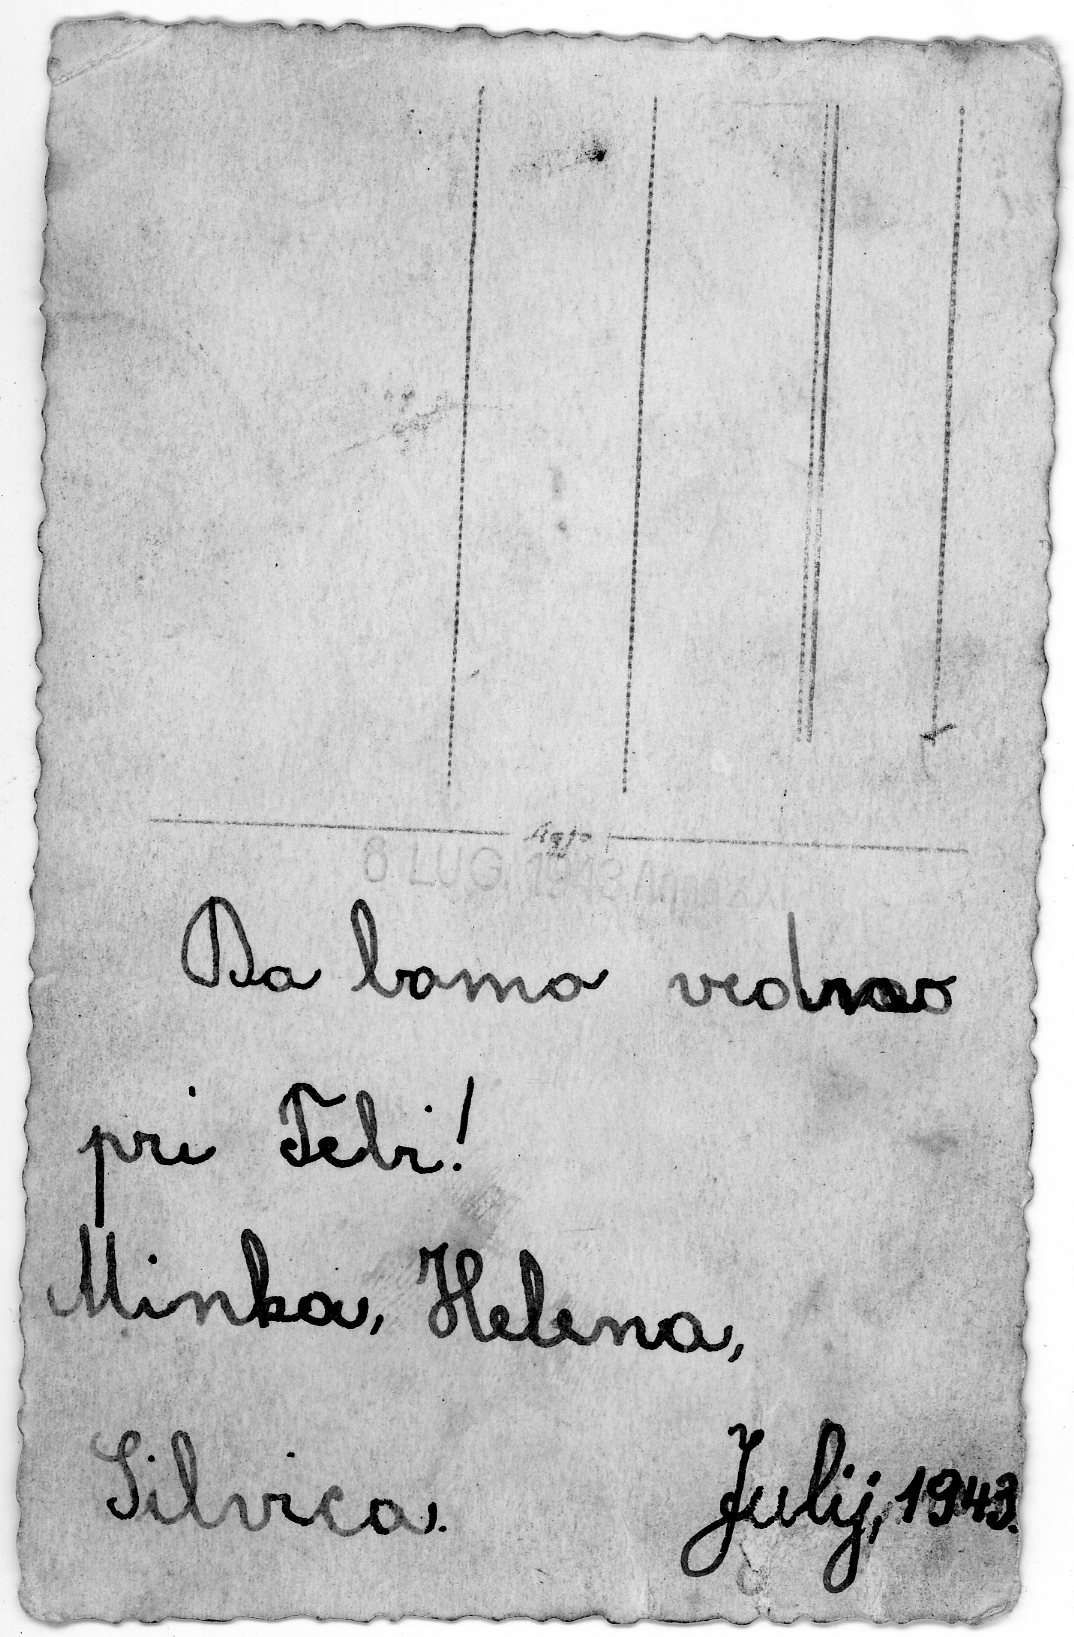 Agfa
6 LUG. 1943 Anno XXI
Da bomo vedno
pri Tebi!
Minka, Helena,
Silvica.
Julij, 1943.